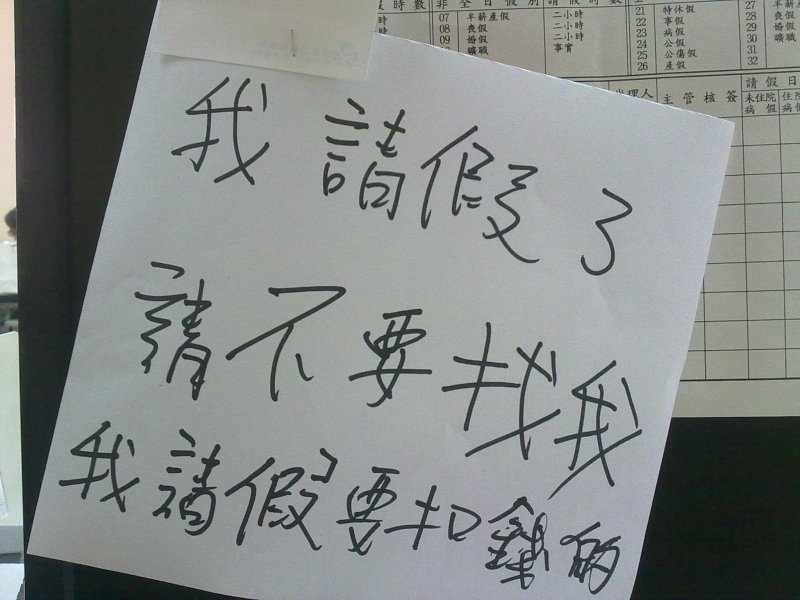 假時數 非全日假別 請假時數
07 半薪產假 二小時
08 喪假 二小時
09 婚假 二小時
曠職 事實
21 特休假
22 事假
23 病假
24 公假
25 公傷假
26 產假
27 半薪
28 喪假
29 婚假
30 曠職
31
32
主管核簽
請假日
未住院病假
我請假了
請不要找我
我請假要扣錢的